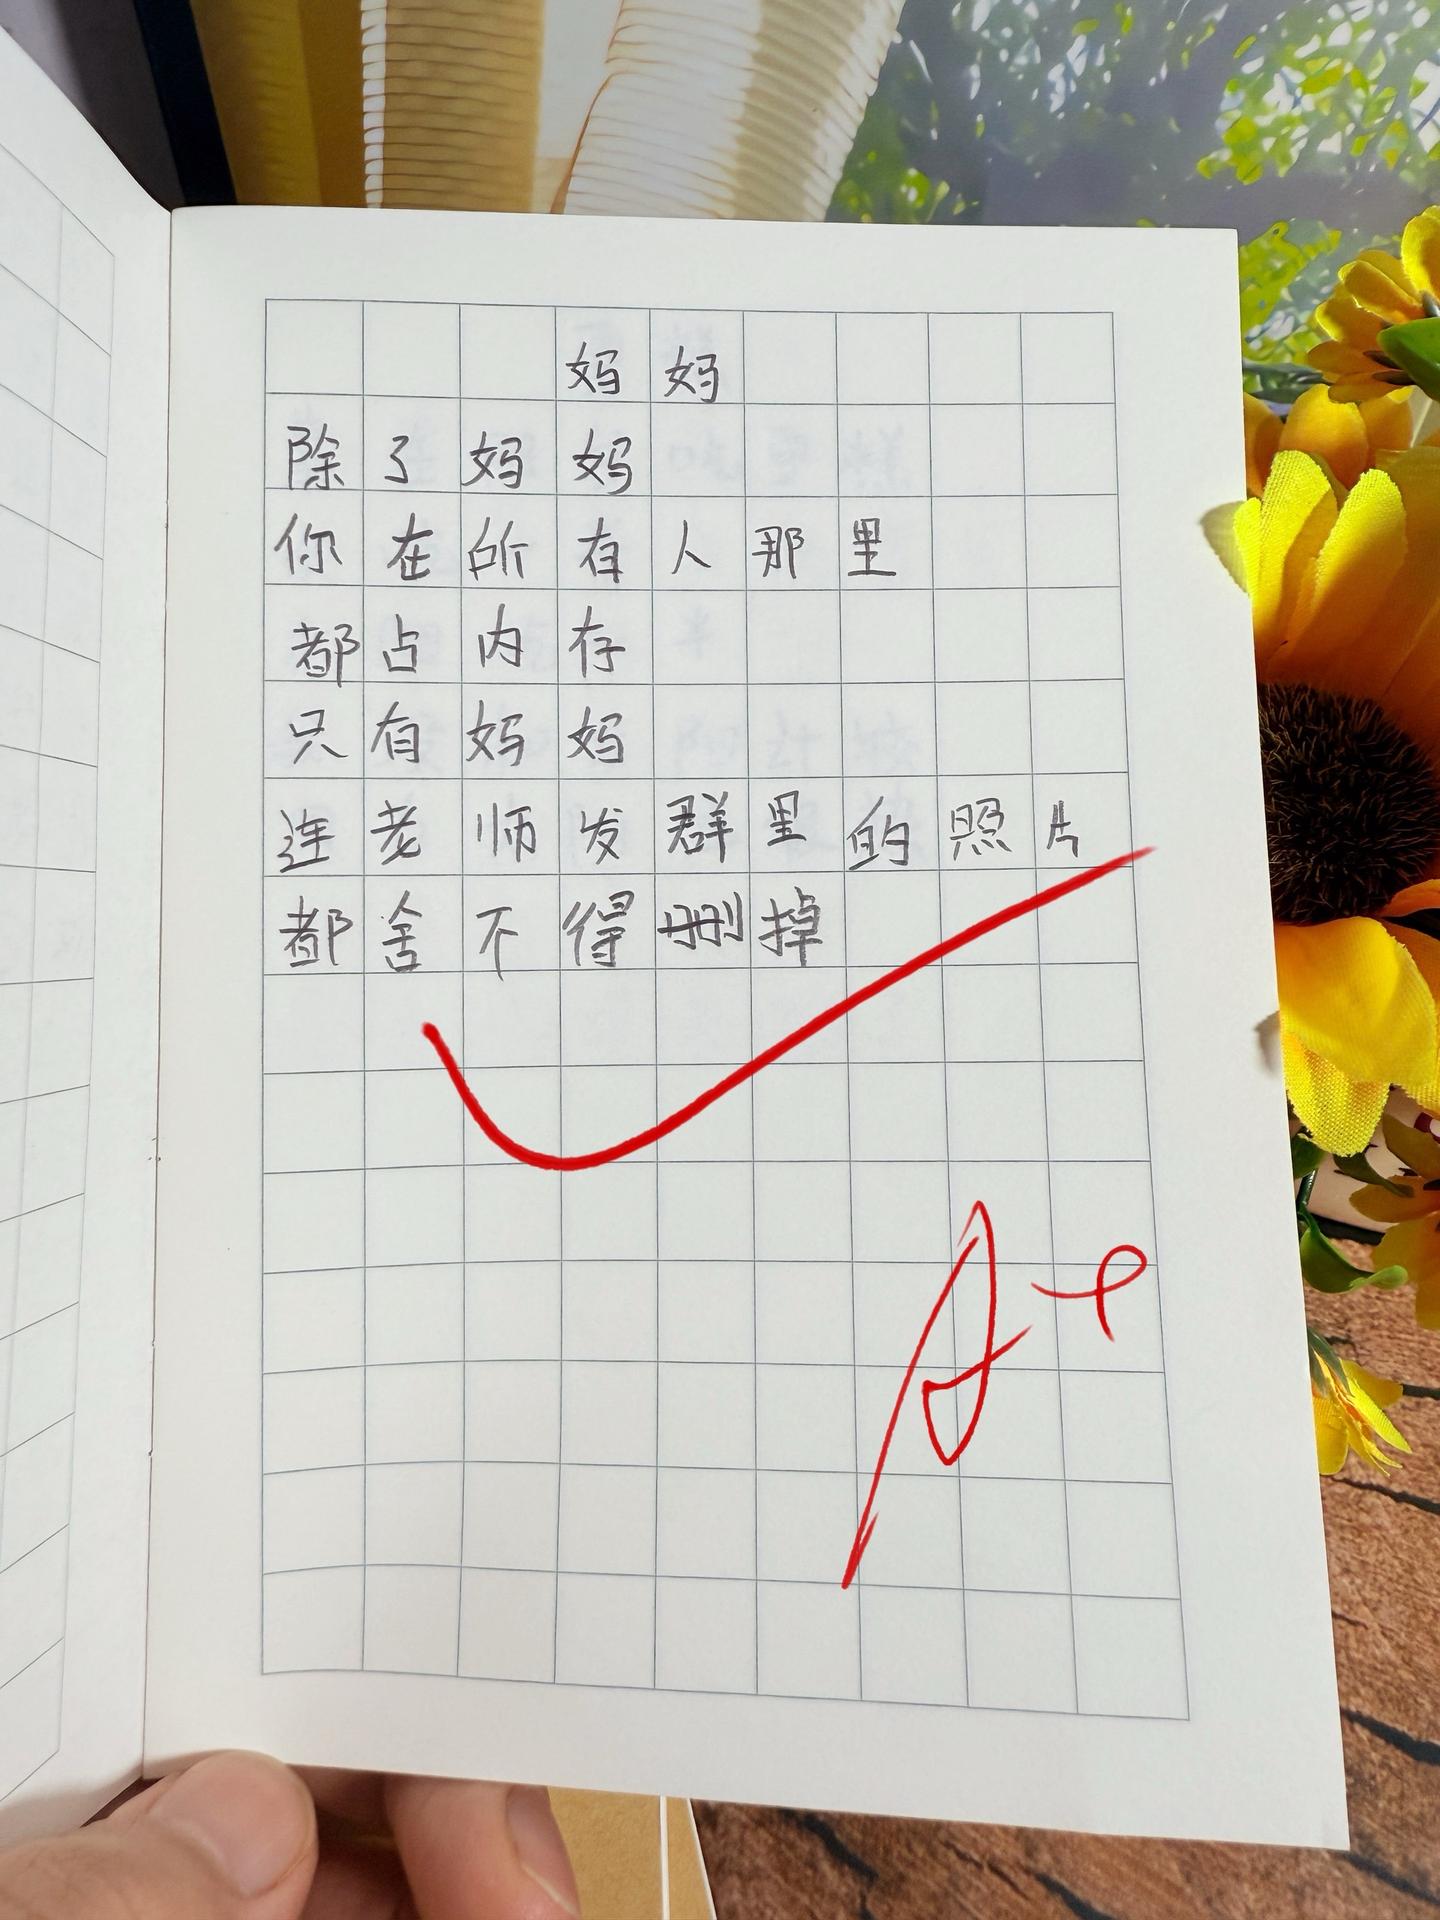 妈妈
除了妈妈
你在所有人那里
都占内存
只有妈妈
连老师发群里的照片
都舍不得删掉
A+